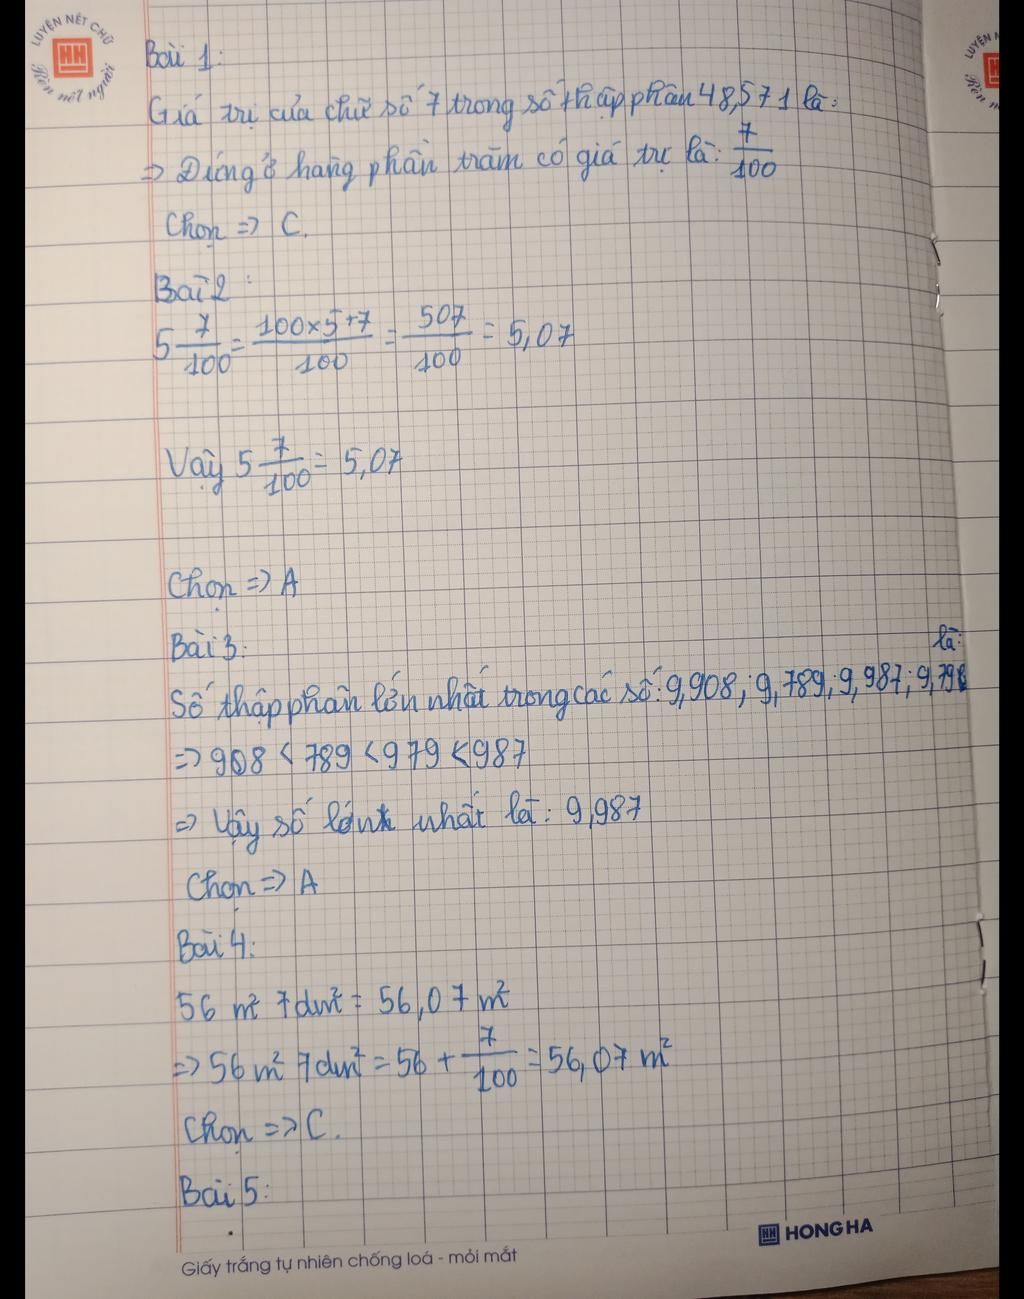 LUYỆN NÉT CHỮ
HH
Rèn nết người
LUYỆN N
Bài 1:
Giá trị của chữ số 7 trong số thập phân 48,571 là:
=> Đứng ở hàng phần trăm có giá trị là: 7/100
Chọn => C.
Bài 2:
5 7/100 = 100×5+7/100 = 507/100 = 5,07
Vậy 5 7/100 = 5,07
Chọn => A
Bài 3:
là:
Số thập phân lớn nhất trong các số: 9,908; 9,789; 9,987; 9,798
=> 908 < 789 < 979 < 987
=> Vậy số lớn nhất là: 9,987
Chọn => A
Bài 4:
56 m² 7dm² = 56,07 m²
=> 56 m² 7dm² = 56 + 7/100 = 56,07 m²
Chọn => C.
Bài 5:
HH HONG HA
Giấy trắng tự nhiên chống loá - mỏi mắt